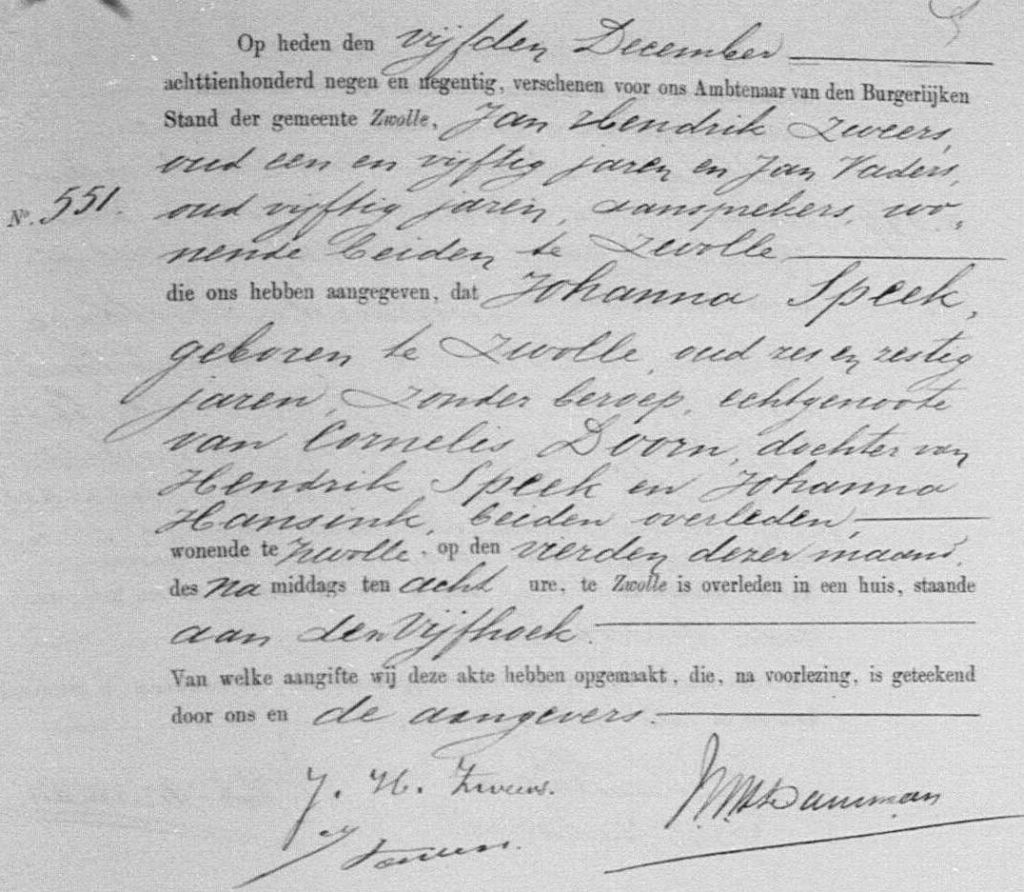 Op heden den vijfden December
achttienhonderd negen en negentig, verschenen voor ons Ambtenaar van den Burgerlijken
Stand der gemeente Zwolle, Jan Hendrik Zweers,
oud een en vijftig jaren en Jan Vaders,
No. 551. oud vijftig jaren, aansprekers, wo„
nende beiden te Zwolle
die ons hebben aangegeven, dat Johanna Speek,
geboren te Zwolle, oud zes en zestig
jaren, zonder beroep, echtgenoote
van Cornelis Doorn, dochter van
Hendrik Speek en Johanna
Hansink, beiden overleden
wonende te Zwolle, op den vierden dezer maand,
des na middags ten acht ure, te Zwolle is overleden in een huis, staande
aan den Vijfhoek.
Van welke aangifte wij deze akte hebben opgemaakt, die, na voorlezing, is geteekend
door ons en de aangevers.
J. H. Zweers.